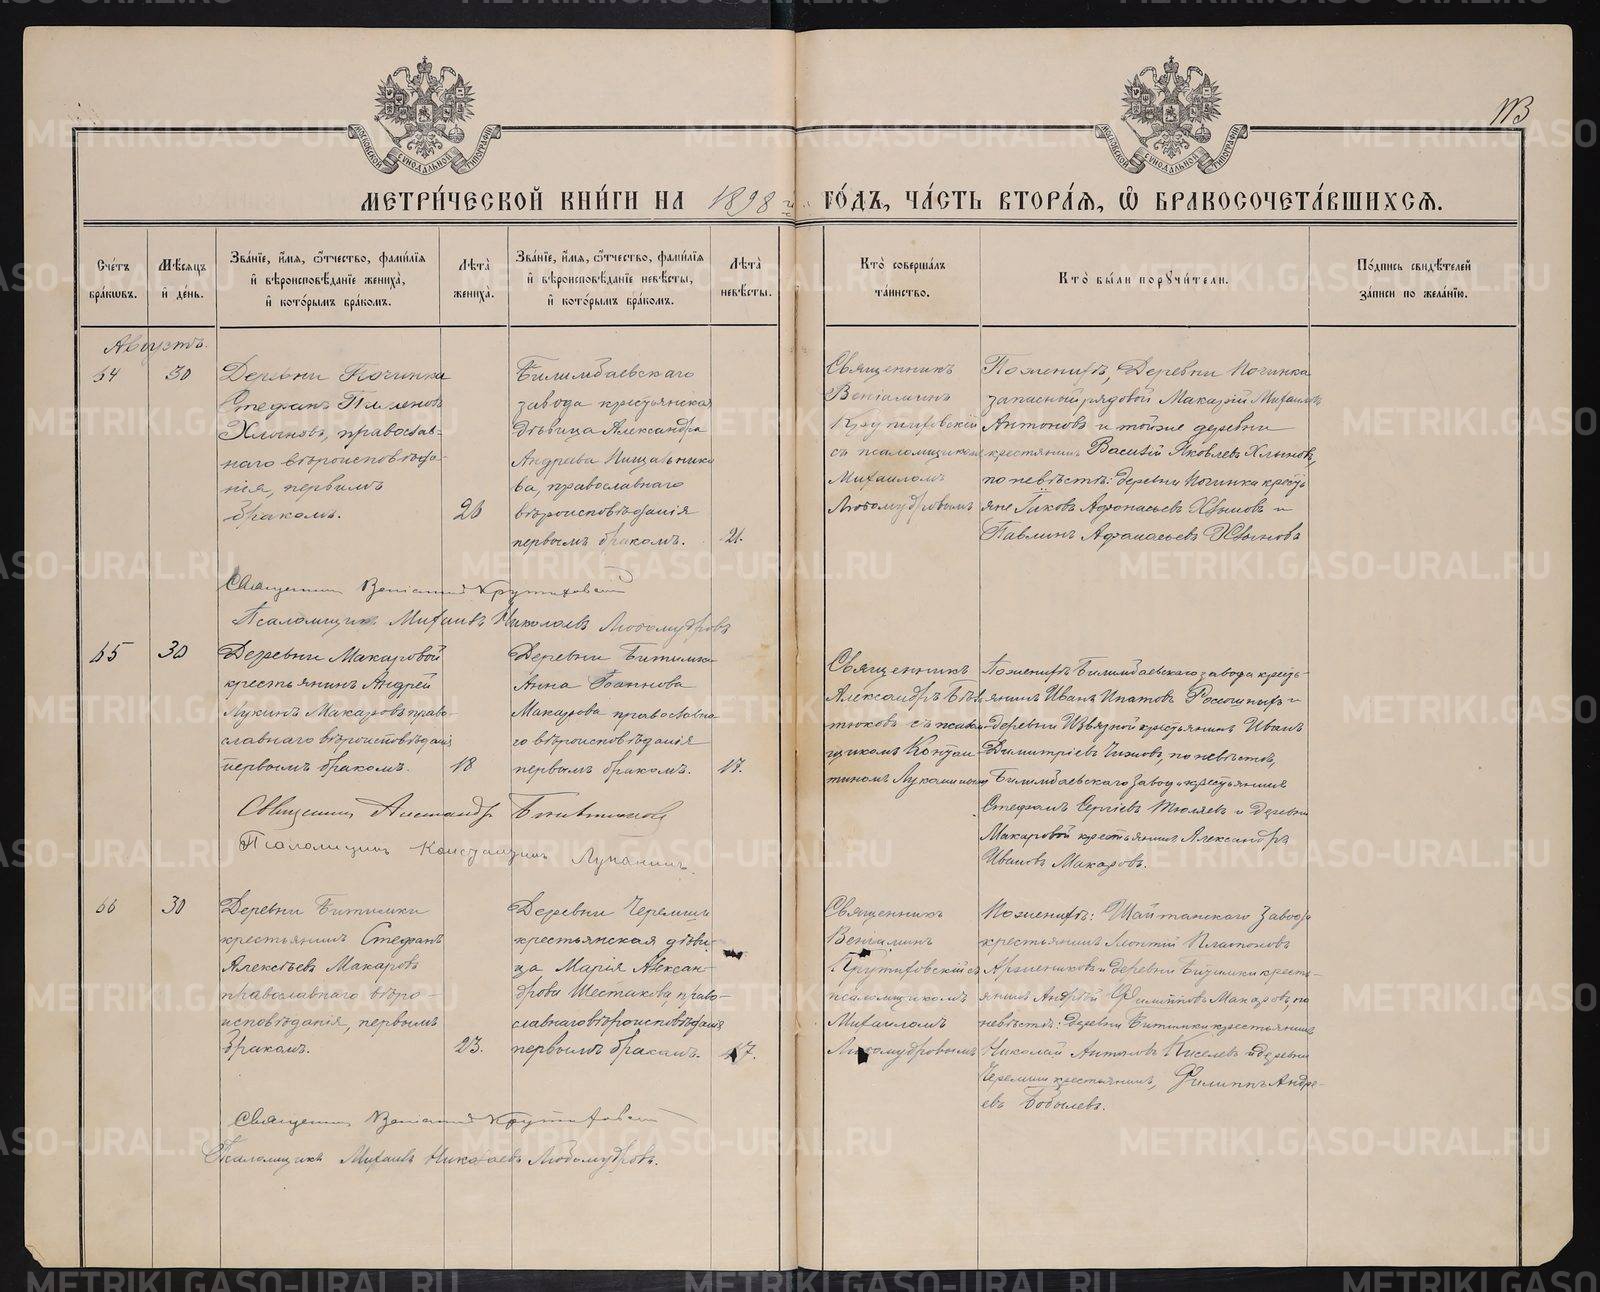 113
МОСКОВСКОЙ СѴНОДАЛЬНОЙ ТИПОГРАФІИ
МОСКОВСКОЙ СѴНОДАЛЬНОЙ ТИПОГРАФІИ
МЕТРИ́ЧЕСКОЙ КНИ́ГИ НА 1898 ГО́ДЪ, ЧА́СТЬ ВТОРА́Я, Ѿ БРАКОСОЧЕТА́ВШИХСЯ.
Сче́тъ бра́ковъ.
Мѣ́сяцъ и҆ де́нь.
Зва́нїе, и҆́мя, ѻ҆́тчество, фами́лїя и҆ вѣроисповѣ́данїе жениха̀, и҆ кото́рымъ бра́комъ.
Лѣта̀ жениха̀.
Зва́нїе, и҆́мя, ѻ҆́тчество, фами́лїя и҆ вѣроисповѣ́данїе невѣ́сты, и҆ кото́рымъ бра́комъ.
Лѣта̀ невѣ́сты.
Кто̀ соверша́лъ та́инство.
Кто̀ бы́ли порꙋчи́тели.
По́дпись свидѣ́телей за́писи по жела́нїю.
Августъ.
64
30
Деревни Починка
Стефанъ
Хлыновъ, православ-
наго вѣроисповѣда-
нія, первымъ
бракомъ.
26
Билимбаевскаго
завода крестьянская
дѣвица Александра
Андреева Пищальнико
ва, православнаго
вѣроисповѣданія
первымъ бракомъ.
21.
Священникъ
Веніаминъ
Крутиховскій
съ псаломщикомъ
Михаиломъ
Любомудровымъ
По женихѣ, Деревни Починка
запасной рядовой Макарій Михаиловъ
Антоновъ и тойже деревни
крестьянинъ Василій Яковлевъ Хлыновъ,
по невѣстѣ: деревни Починка кресть
яне Аѳонасьевъ Хлыновъ и
Павлинъ Афанасьевъ Хлыновъ
Священникъ Веніаминъ Крутиховскій
Псаломщикъ Михаилъ Николаевъ Любомудровъ
65
30
Деревни Макаровой
крестьянинъ Андрей
Лукинъ Макаровъ право-
славнаго вѣроисповѣданія
первымъ бракомъ.
18
Деревни Битимки
Анна Іоаннова
Макарова православна
го вѣроисповѣданія
первымъ бракомъ.
17.
Священникъ
Александръ
съ псалом
щикомъ Констан
тиномъ
По женихѣ Билимбаевскаго завода кресть-
янинъ Иванъ Ипатовъ и
деревни Извѣздной крестьянинъ Иванъ
Димитріевъ по невѣстѣ,
Билимбаевскаго завода крестьянинъ
Стефанъ Сергіевъ Тюляевъ и деревни
Макаровой крестьянинъ Александръ
Ивановъ Макаровъ.
Священникъ Александръ
Псаломщикъ Константинъ
66
30
Деревни Битимки
крестьянинъ Стефанъ
Алексѣевъ Макаровъ
православнаго вѣро-
исповѣданія, первымъ
бракомъ.
23.
Деревни Черемши
крестьянская дѣви-
ца Марія Алексан-
дрова Шестакова, право-
славнаго вѣроисповѣданія
первымъ бракомъ.
17.
Священникъ
Веніаминъ
Крутиховскій съ
псаломщикомъ
Михаиломъ
Любомудровымъ
По женихѣ: Шайтанскаго завода
крестьянинъ Платоновъ
и деревни Битимки кресть-
янинъ Андрей Филипповъ Макаровъ, по
невѣстѣ: деревни Битимки крестьянинъ
Николай Киселевъ и деревни
Черемши крестьянинъ, Филиппъ Андре-
евъ Бобылевъ.
Священникъ Веніаминъ Крутиховскій
Псаломщикъ Михаилъ Николаевъ Любомудровъ.
METRIKI.GASO-URAL.RU